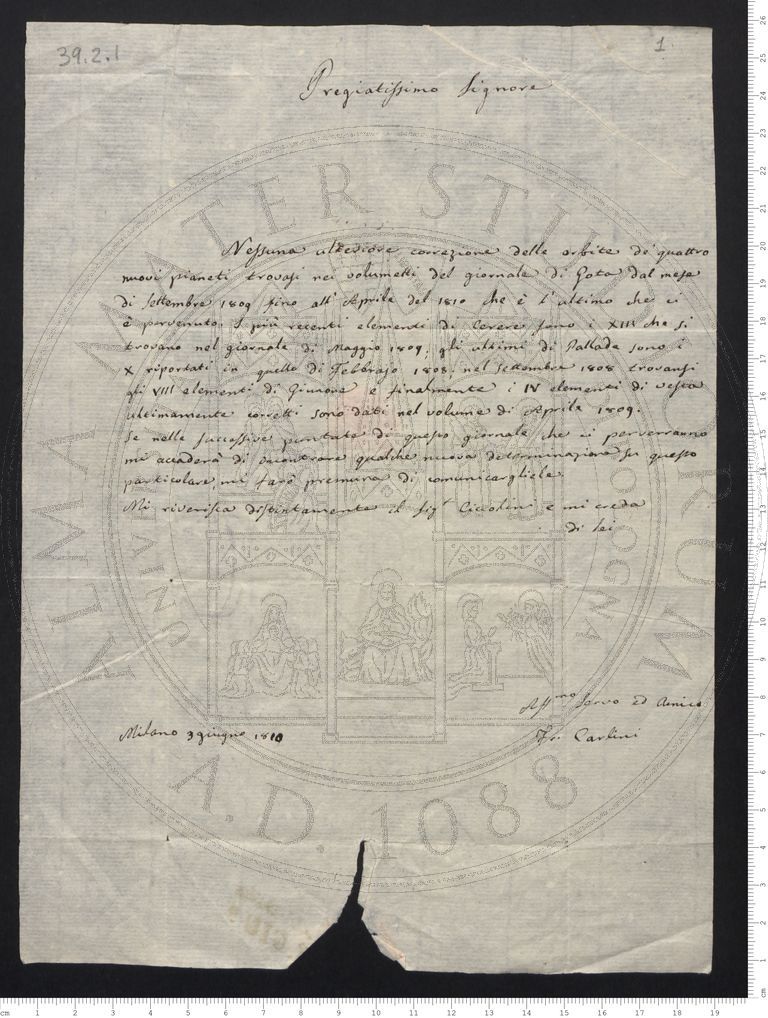 39.2.1
1
Pregiatissimo Signore
Nessuna ulteriore correzione delle orbite de' quattro
nuovi pianeti trovasi nei volumetti del giornale di Gota dal mese
di Settembre 1809 fino all' Aprile del 1810 che è l'ultimo che ci
è pervenuto. I più recenti elementi di Cerere sono i XIII che si
trovano nel giornale di Maggio 1809; gli ultimi di Pallade sono i
X riportati in quello di Febbrajo 1808; nel Settembre 1808 trovansi
gli VIII elementi di Giunone e finalmente i IV elementi di Vesta
ultimamente corretti sono dati nel volume di Aprile 1809.
Se nelle successive puntate di questo giornale che ci perverranno
mi accaderà di incontrare qualche nuova determinazione su questo
particolare mi farò premura di comunicargliele.
Mi riverisca distintamente il Sigr Ciccolini e mi creda
di lei
Affmo servo ed Amico
Milano 3 giugno 1810
Fr. Carlini
ALMA MATER STUDIORUM
A.D. 1088